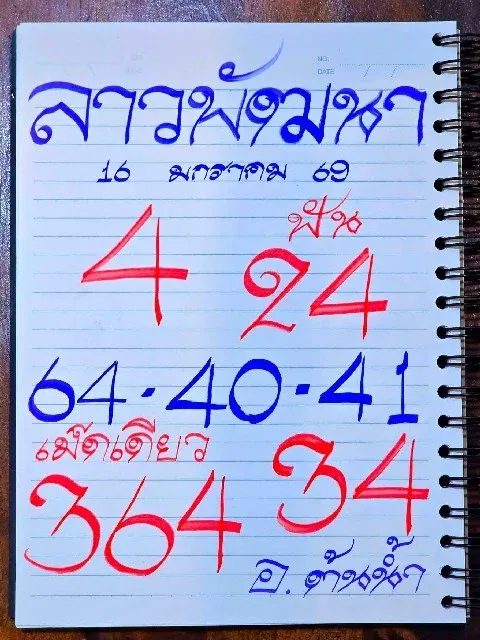 NO.
DATE / /
ลาวพัฒนา
16 มกราคม 69
4 ฟัน 24
64-40-41
เม็ดเดียว
364 34
อ. ต้นน้ำ